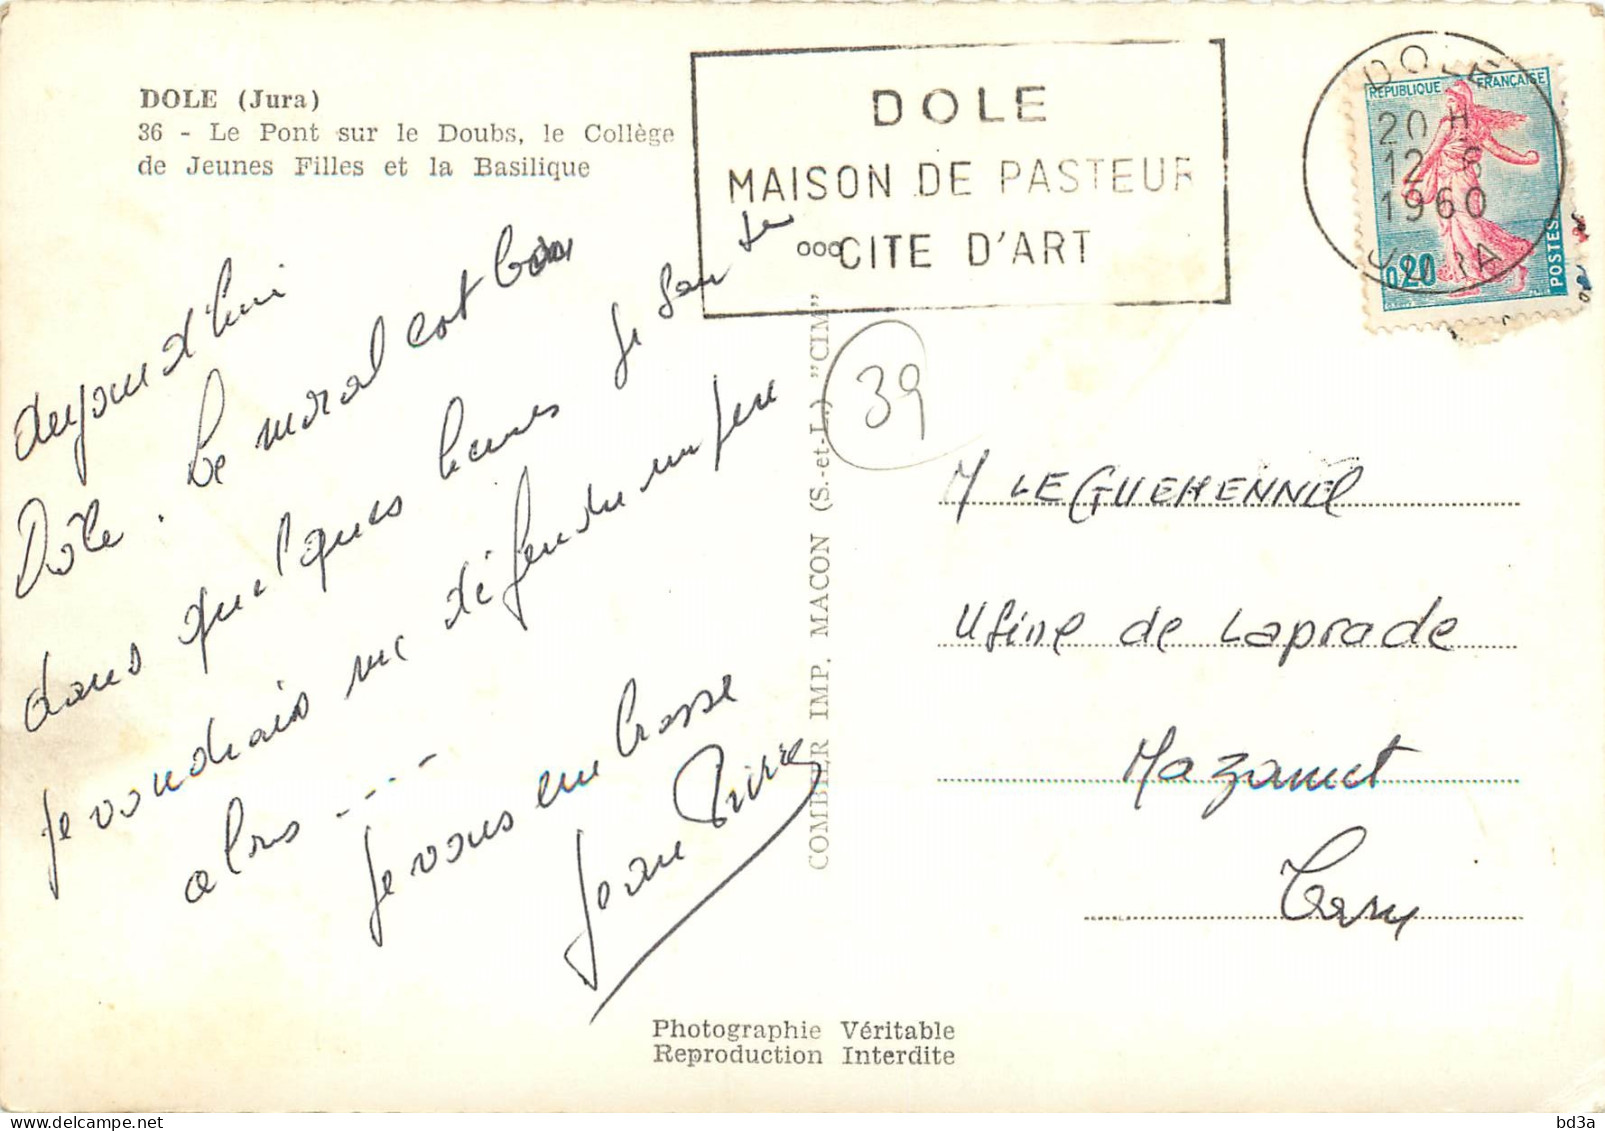 DOLE (Jura)
36 - Le Pont sur le Doubs, le Collège
de Jeunes Filles et la Basilique
DOLE
MAISON DE PASTEUR
CITE D'ART
DOLE
20 H
12 - 8
1960
JURA
REPUBLIQUE FRANÇAISE
0,20
POSTES
39
aujourd'hui
Dôle. Le moral est bon
dans quelques heures je
je voudrais me défendre un peu
alors ....
je vous embrasse
Jean Pierre
COMBIER IMP. MACON (S.-et-L.) "CIM"
M LE GUEHENNEC
Usine de Laprade
Mazamet
Tarn
Photographie Véritable
Reproduction Interdite
bd3a